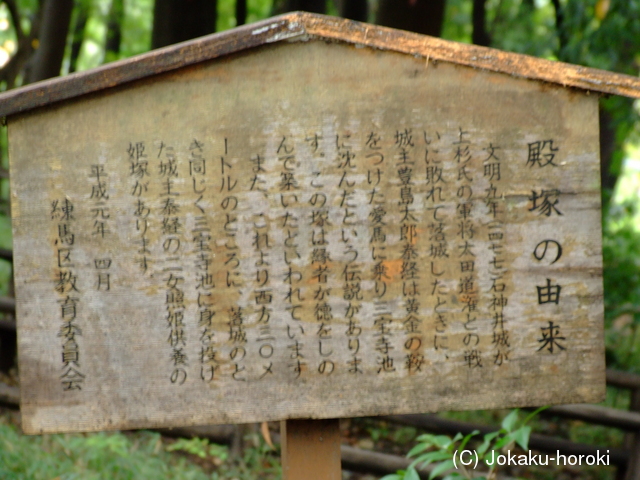 殿塚の由来
文明九年(一四七七)石神井城が
上杉氏の軍将太田道灌との戦
いに敗れて落城したときに、
城主豊島太郎泰経は黄金の鞍
をつけた愛馬に乗り三宝寺池
に沈んだという伝説がありま
す。この塚は縁者が徳をしの
んで築いたといわれています。
また、これより西方三〇メ
ートルのところに、落城のと
き同じく三宝寺池に身を投げ
た城主泰経の二女照姫供養の
姫塚があります。
平成元年 四月
練馬区教育委員会
(C) Jokaku-horoki